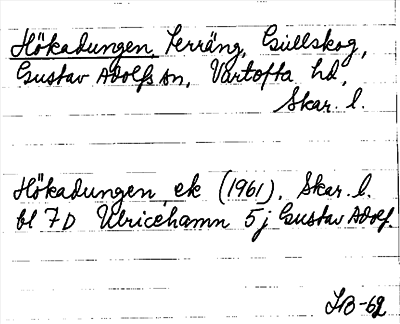 Hökadungen, terräng, Gullskog,
Gustav Adolfs sn, Vartofta hd,
Skar. l.
Hökadungen ek (1961), Skar. l.
bl 7D Ulricehamn 5j Gustav Adolf.